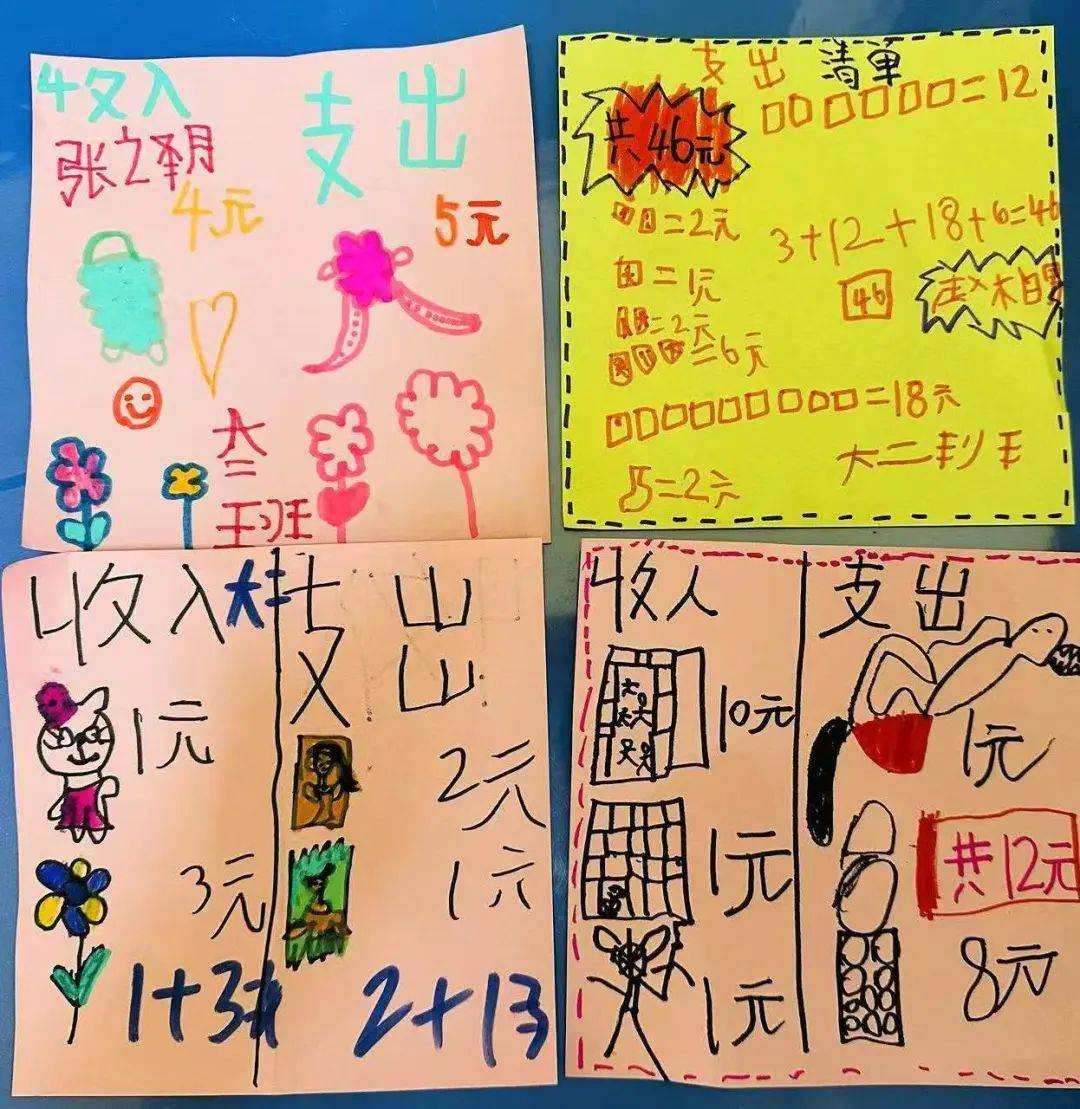 收入
支出
张之玥
4元
5元
大二
班
支出 清单
=12
共46元
=2元
3+12+18+6=46
=1元
46
=2元
=6元
=18元
大二
=2元
收入 大二
支出
1元
2元
3元
1元
1+3
2+1
收入
支出
10元
1元
1元
共12元
1元
8元